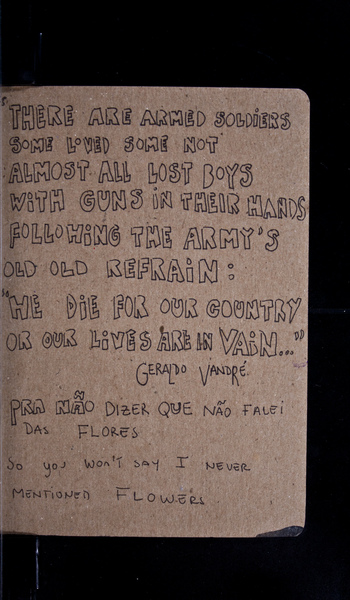 "THERE ARE ARMED SOLDIERS
SOME LOVED SOME NOT
ALMOST ALL LOST BOYS
WITH GUNS IN THEIR HANDS
FOLLOWING THE ARMY'S
OLD OLD REFRAIN:
"WE DIE FOR OUR COUNTRY
OR OUR LIVES ARE IN VAIN..."
GERALDO VANDRÉ
PRA NÃO DIZER QUE NÃO FALEI
DAS FLORES
SO YOU WON'T SAY I NEVER
MENTIONED FLOWERS